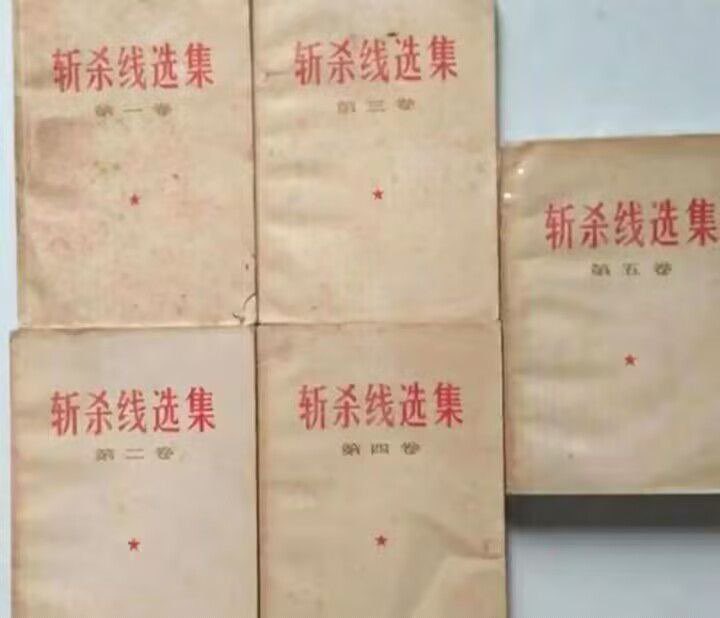 斩杀线选集
第一卷
斩杀线选集
第三卷
斩杀线选集
第五卷
斩杀线选集
第二卷
斩杀线选集
第四卷